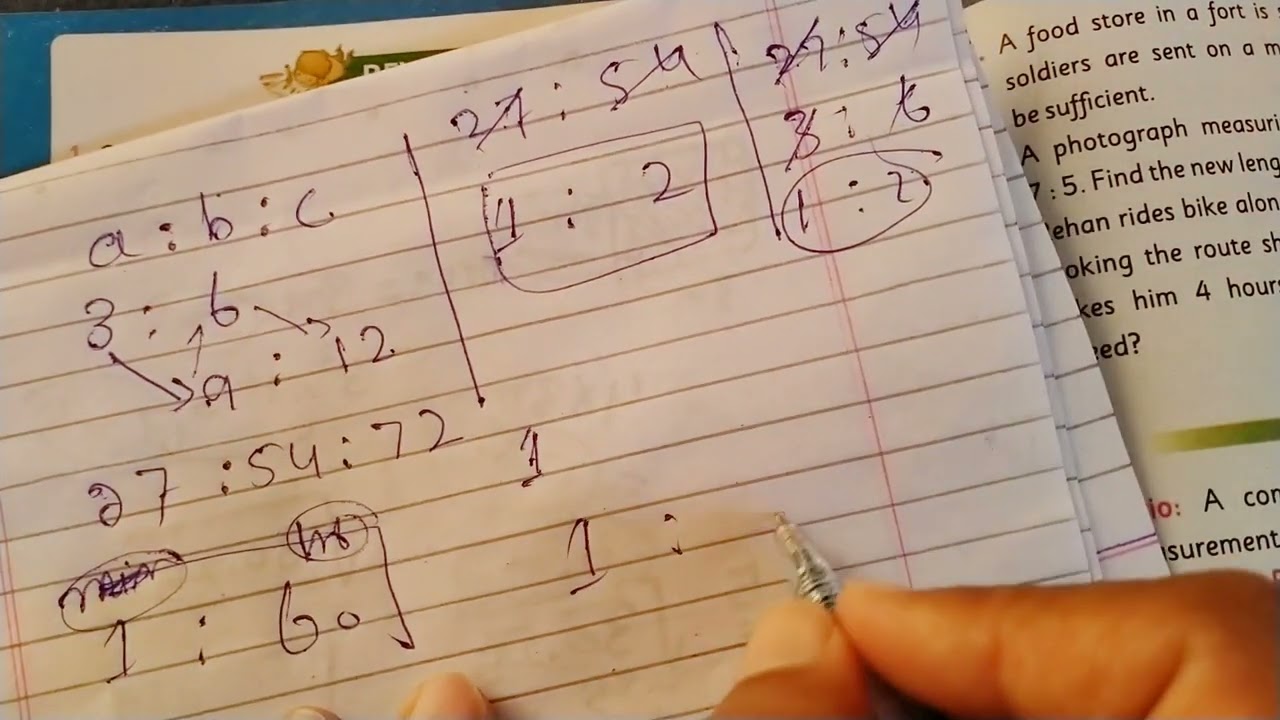 a : b : c
3 : 6
9 : 12
27 : 54 : 72
hr
1 : 60
27 : 54
1 : 2
27 : 54
3 : 6
1 : 2
1
1 :
A food store in a fort is
soldiers are sent on a m
be sufficient.
A photograph measuri
7 : 5. Find the new leng
ehan rides bike alon
oking the route sh
kes him 4 hour
eed?
io: A con
surement